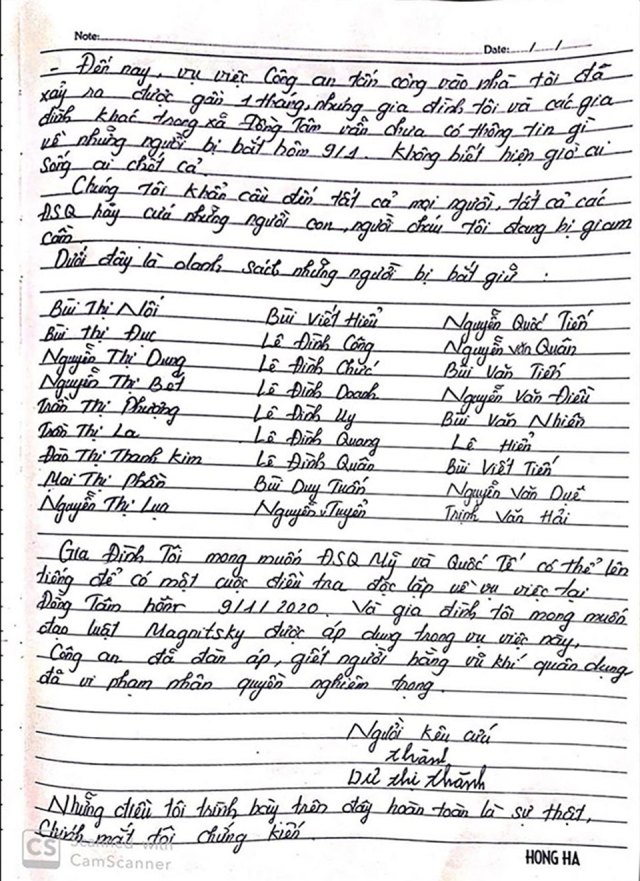 Note:
Date: / /
- Đến nay, vụ việc Công an tấn công vào nhà tôi đã
xảy ra được gần 1 tháng, nhưng gia đình tôi và các gia
đình khác trong xã Đồng Tâm vẫn chưa có thông tin gì
về những người bị bắt hôm 9/1. Không biết hiện giờ ai
sống ai chết cả.
Chúng tôi khẩn cầu đến tất cả mọi người, tất cả các
ĐSQ hãy cứu những người con, người cháu tôi đang bị giam
cầm.
Dưới đây là danh sách những người bị bắt giữ :
Bùi Thị Nối Bùi Viết Hiểu Nguyễn Quốc Tiến
Bùi Thị Đục Lê Đình Công Nguyễn Văn Quân
Nguyễn Thị Dung Lê Đình Chức Bùi Văn Tiến
Nguyễn Thị Bét Lê Đình Doanh Nguyễn Văn Điều
Trần Thị Phượng Lê Đình Uy Bùi Văn Nhiên
Trần Thị La Lê Đình Quang Lê Hiển
Đào Thị Thanh Kim Lê Đình Quân Bùi Viết Tiến
Mai Thị Phần Bùi Duy Tuấn Nguyễn Văn Duệ
Nguyễn Thị Lụa Nguyễn V Tuyển Trịnh Văn Hải
Gia Đình Tôi mong muốn ĐSQ Mỹ và Quốc Tế có thể lên
tiếng để có một cuộc điều tra độc lập về vụ việc tại
Đồng Tâm hôm 9/1/2020. Và gia đình tôi mong muốn
đạo luật Magnitsky được áp dụng trong vụ việc này,
Công an đã đàn áp, giết người bằng vũ khí quân dụng
đã vi phạm nhân quyền nghiêm trọng.
Người kêu cứu
Thành
Dư Thị Thành
Những điều tôi trình bày trên đây hoàn toàn là sự thật,
Chính mắt tôi chứng kiến.
CS Scanned with
CamScanner
HONG HA